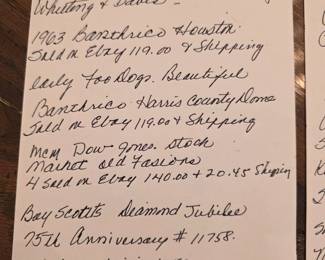 Whiting & Davis -
1963 Banthrico Houston.
Sold on Ebay 119.00 & Shipping
early Foo Dogs. Beautiful
Banthrico Harris County Dome
Sold on Ebay 119.00 & Shipping
mcm Dow Jones. Stock
Market old Fasions
4 Sold on Ebay 140.00 + 20.45 Shipping
Boy Scotts Diamond Jubilee
75th Anniversary # 11758.